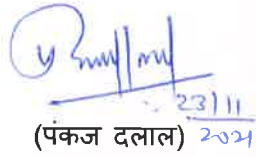 23/11
(पंकज दलाल) 2021